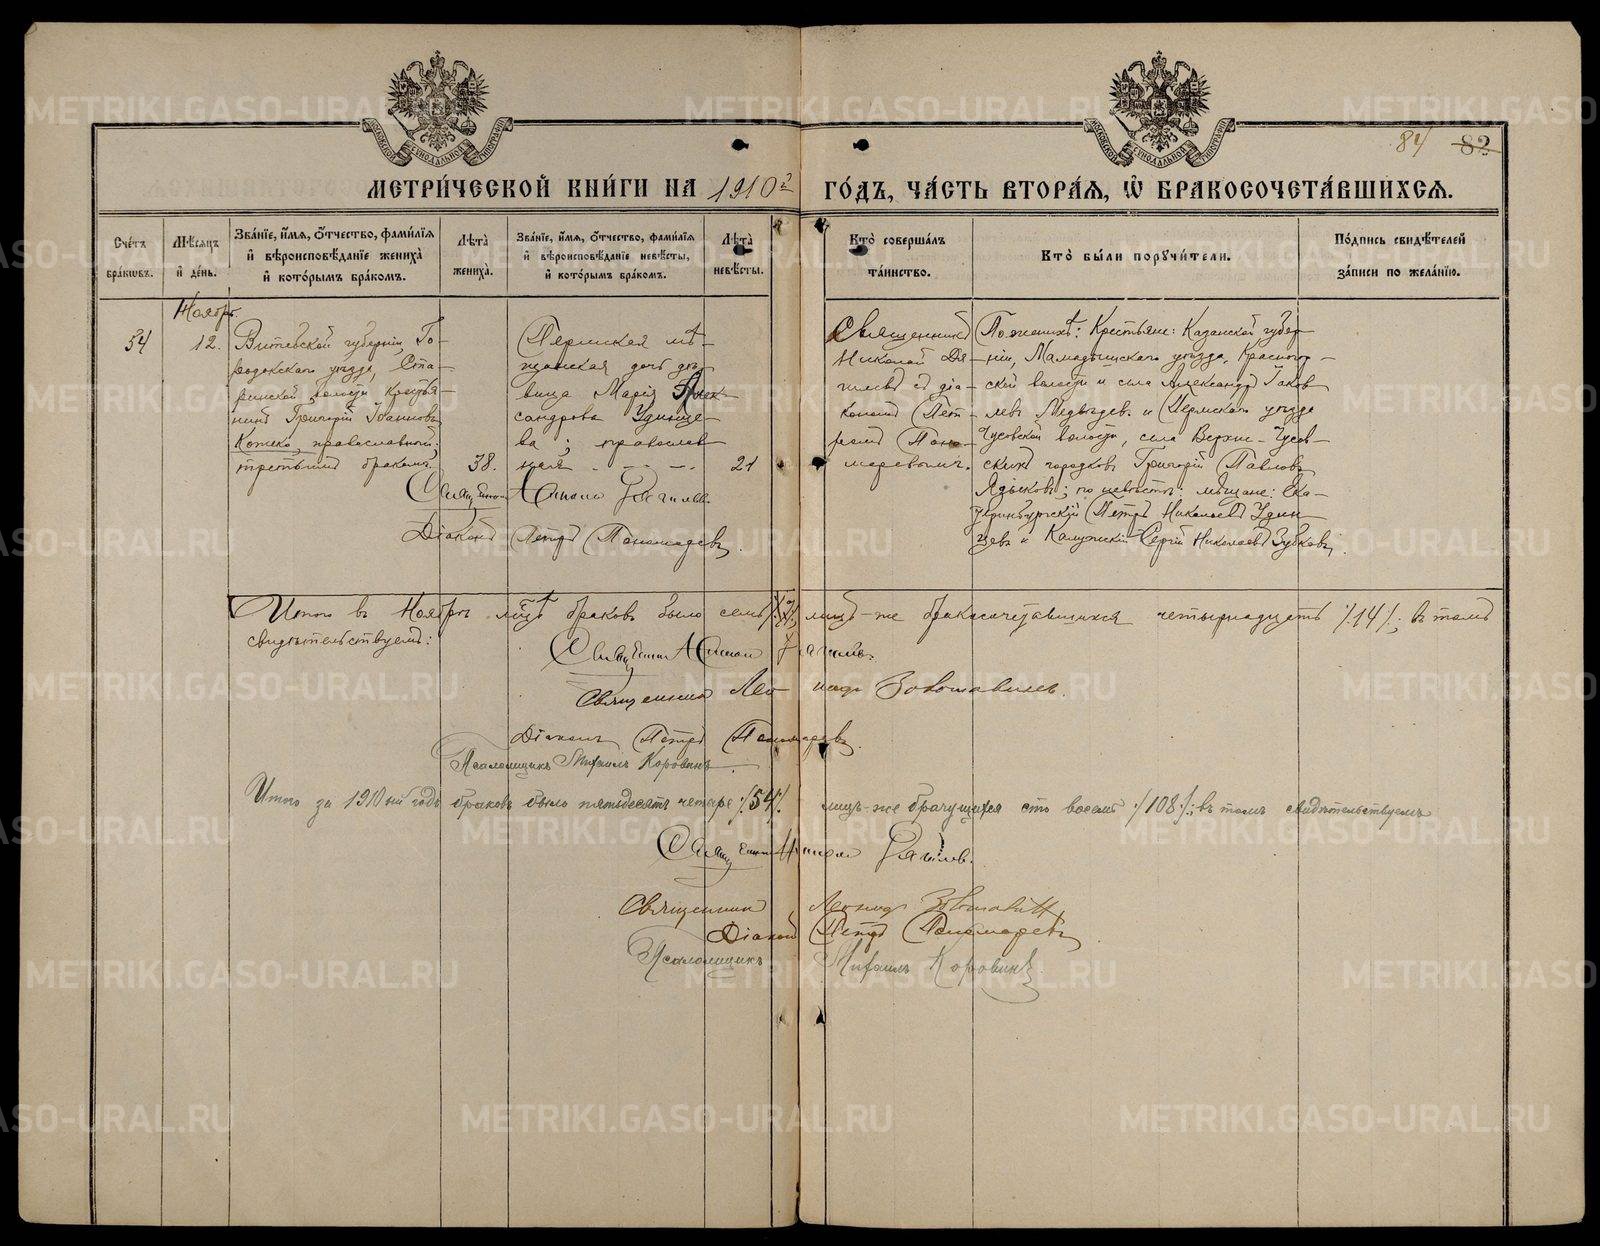 84 82
МЕТРИ́ЧЕСКОЙ КНИ́ГИ НА 1910 ГО́ДЪ, ЧА́СТЬ ВТОРА́Я, Ѡ БРАКОСОЧЕТА́ВШИХСЯ.
Сче́тъ браковъ.
Мѣ́сяцъ и́ де́нь.
Зва́нїе, и́мя, о́тчество, фами́лїя и́ вѣроисповѣ́данїе жениха̀ и́ кото́рымъ бра́комъ.
Лѣта̀ жениха̀.
Зва́нїе, и́мя, о́тчество, фами́лїя и́ вѣроисповѣ́данїе невѣ́сты, и́ кото́рымъ бра́комъ.
Лѣта̀ невѣ́сты.
Кто̀ соверша́лъ та́инство.
Кто̀ бы́ли поручи́тели.
По́дпись свидѣ́телей за́писи по жела́нїю.
Ноябрь
54
12.
Витебской губерніи, Го-
родокскаго уѣзда, Ста-
ринской волости крестья-
нинъ Григорій Іоанновъ
Котеко, православный,
третьимъ бракомъ.
38.
Пермская мѣ-
щанская дочь дѣ-
вица Марія Алек-
сандрова Удинце-
ва; православ-
ная
21
Священникъ
Николай
съ діа-
кономъ Пет-
ромъ Поно-
маревымъ.
По женихѣ: Крестьяне: Казанской губер-
ніи, Мамадышскаго уѣзда, Красногор-
ской волости и села Александръ Яков-
левъ Медвѣдевъ и Пермскаго уѣзда
Чусовской волости, села Верхне-Чусов-
скихъ городковъ Григорій Павловъ
по невѣстѣ: мѣщане: Ека-
теринбургскій Петръ Николаевъ Удин-
цевъ и Калужскій Сергій Николаевъ Зубковъ.
Священникъ
Діаконъ Петръ Пономаревъ.
Итого въ Ноябрѣ м͠цѣ браковъ было семь /:7:/, лицъ-же бракосочетавшихся четырнадцать /:14:/; въ томъ
свидѣтельствуемъ:
Священникъ
Священникъ
Діаконъ Петръ Пономаревъ.
Псаломщикъ Михаилъ Коровинъ
Итого за 1910ый годъ браковъ было пятьдесятъ четыре /:54:/. лицъ-же брачущихся сто восемь /:108:/; въ томъ свидѣтельствуемъ
Священникъ
Священникъ
Діаконъ Петръ Пономаревъ
Псаломщикъ Михаилъ Коровинъ
METRIKI.GASO-URAL.RU